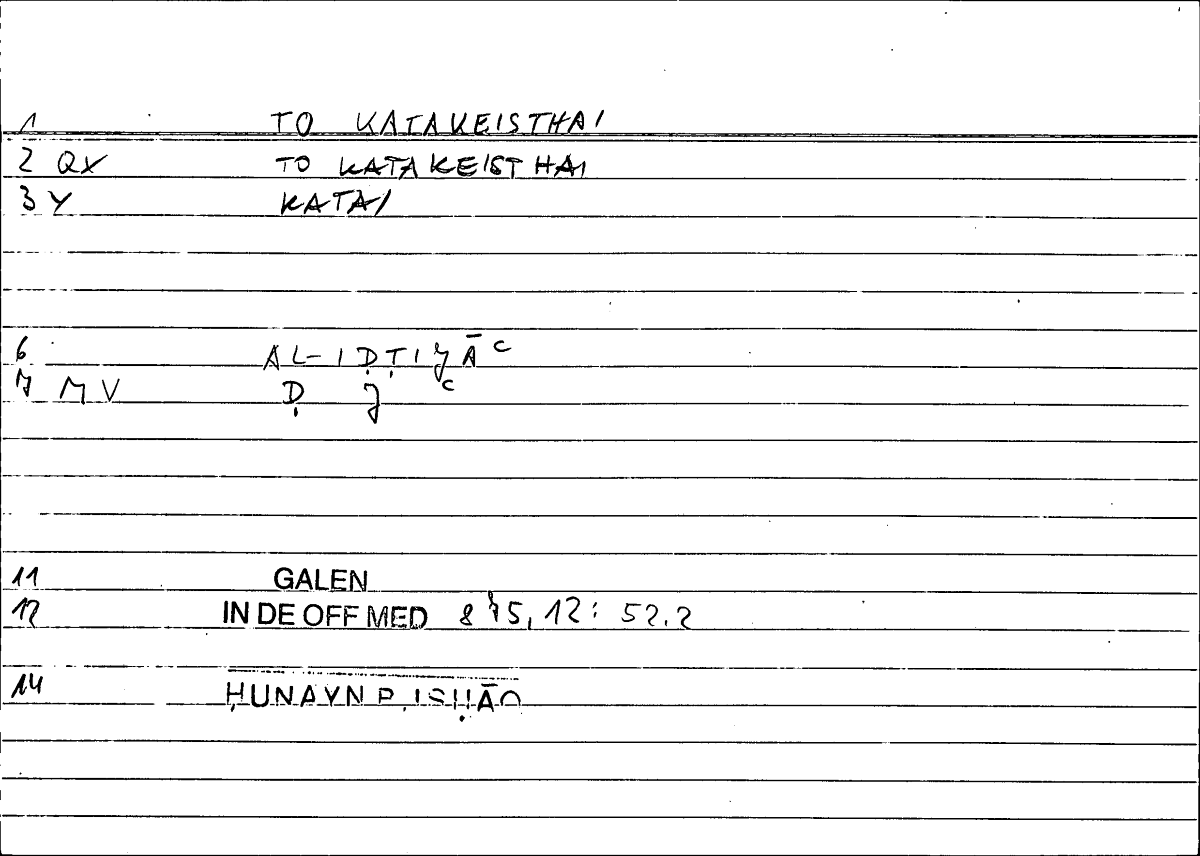 1 TO KATAKEISTHAI
2 QX TO KATAKEISTHAI
3 Y KATAI
6 AL-IḌṬIǦĀʿ
7 MV Ḍ Ǧ ʿ
11 GALEN
12 IN DE OFF MED 8 § 5, 12: 52.2
14 ḤUNAYN B. ISḤĀQ